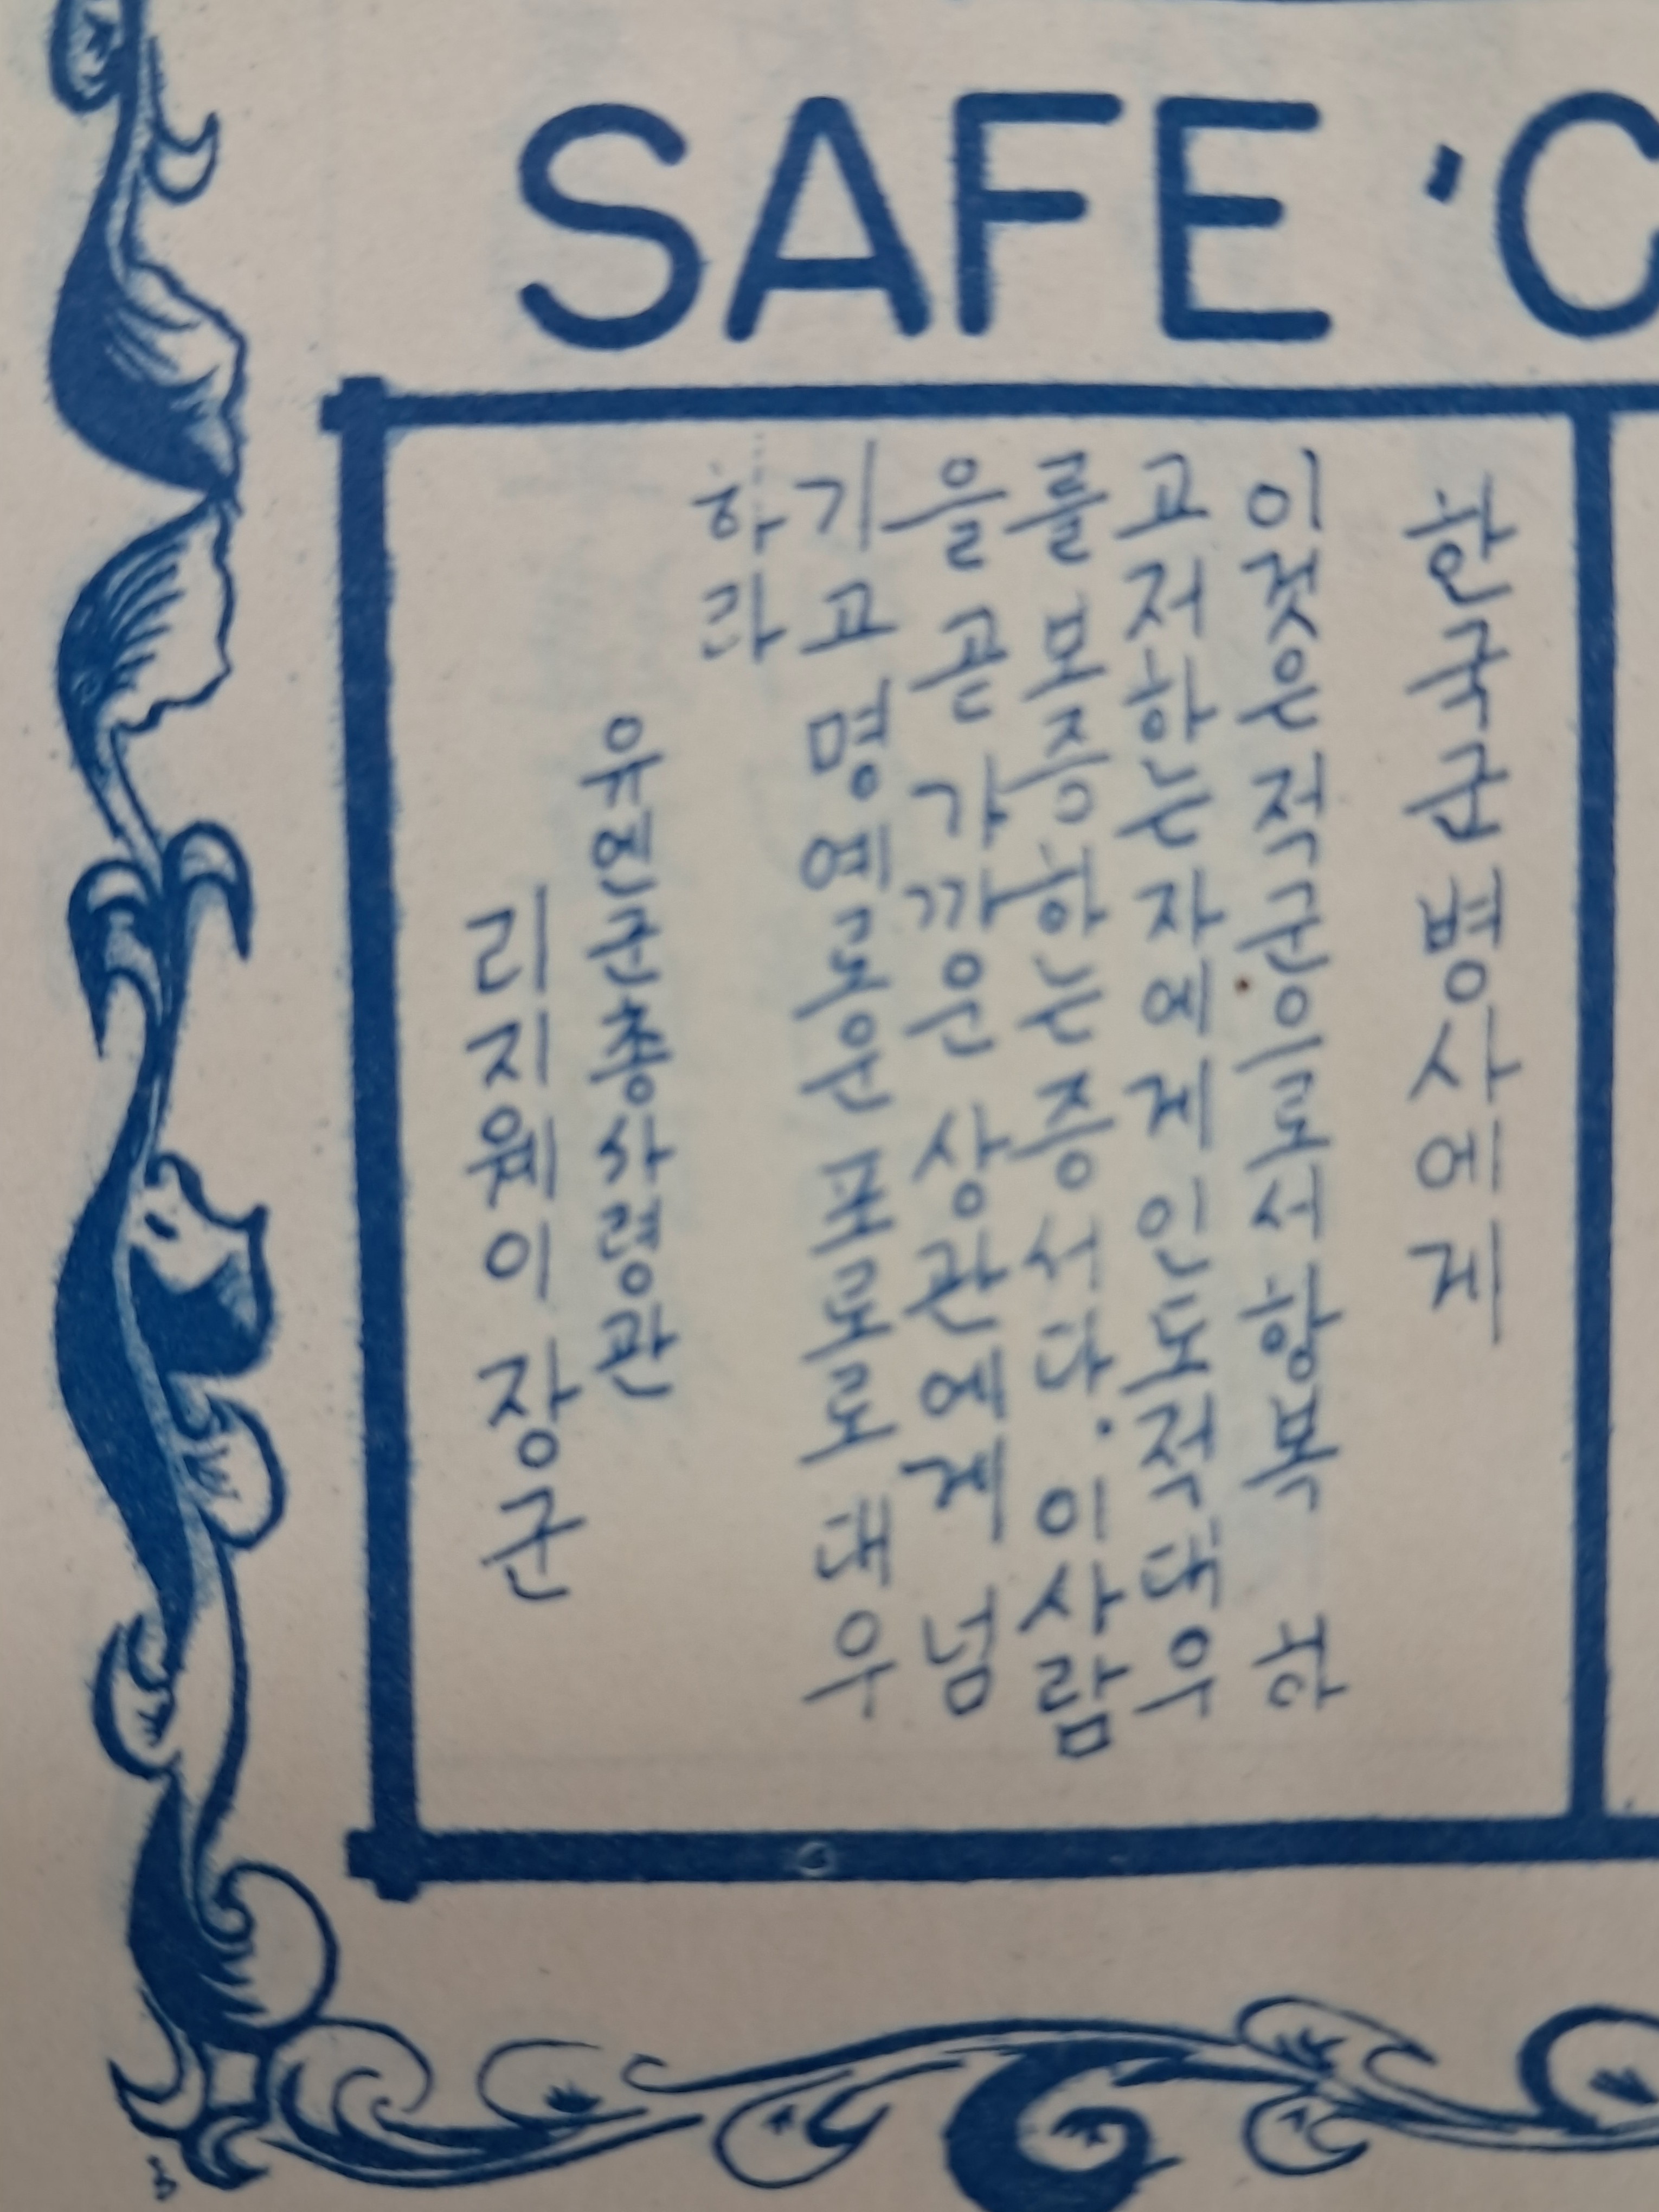 SAFE C
한국군 병사에게
이것은 적군으로서 항복 하
고저하는 자에게 인도적 대우
를 보증하는 증서다. 이 사람
을 곧 가까운 상관에게 넘
기고 명예로운 포로로 대우
하라
유엔군총사령관
리지웨이 장군